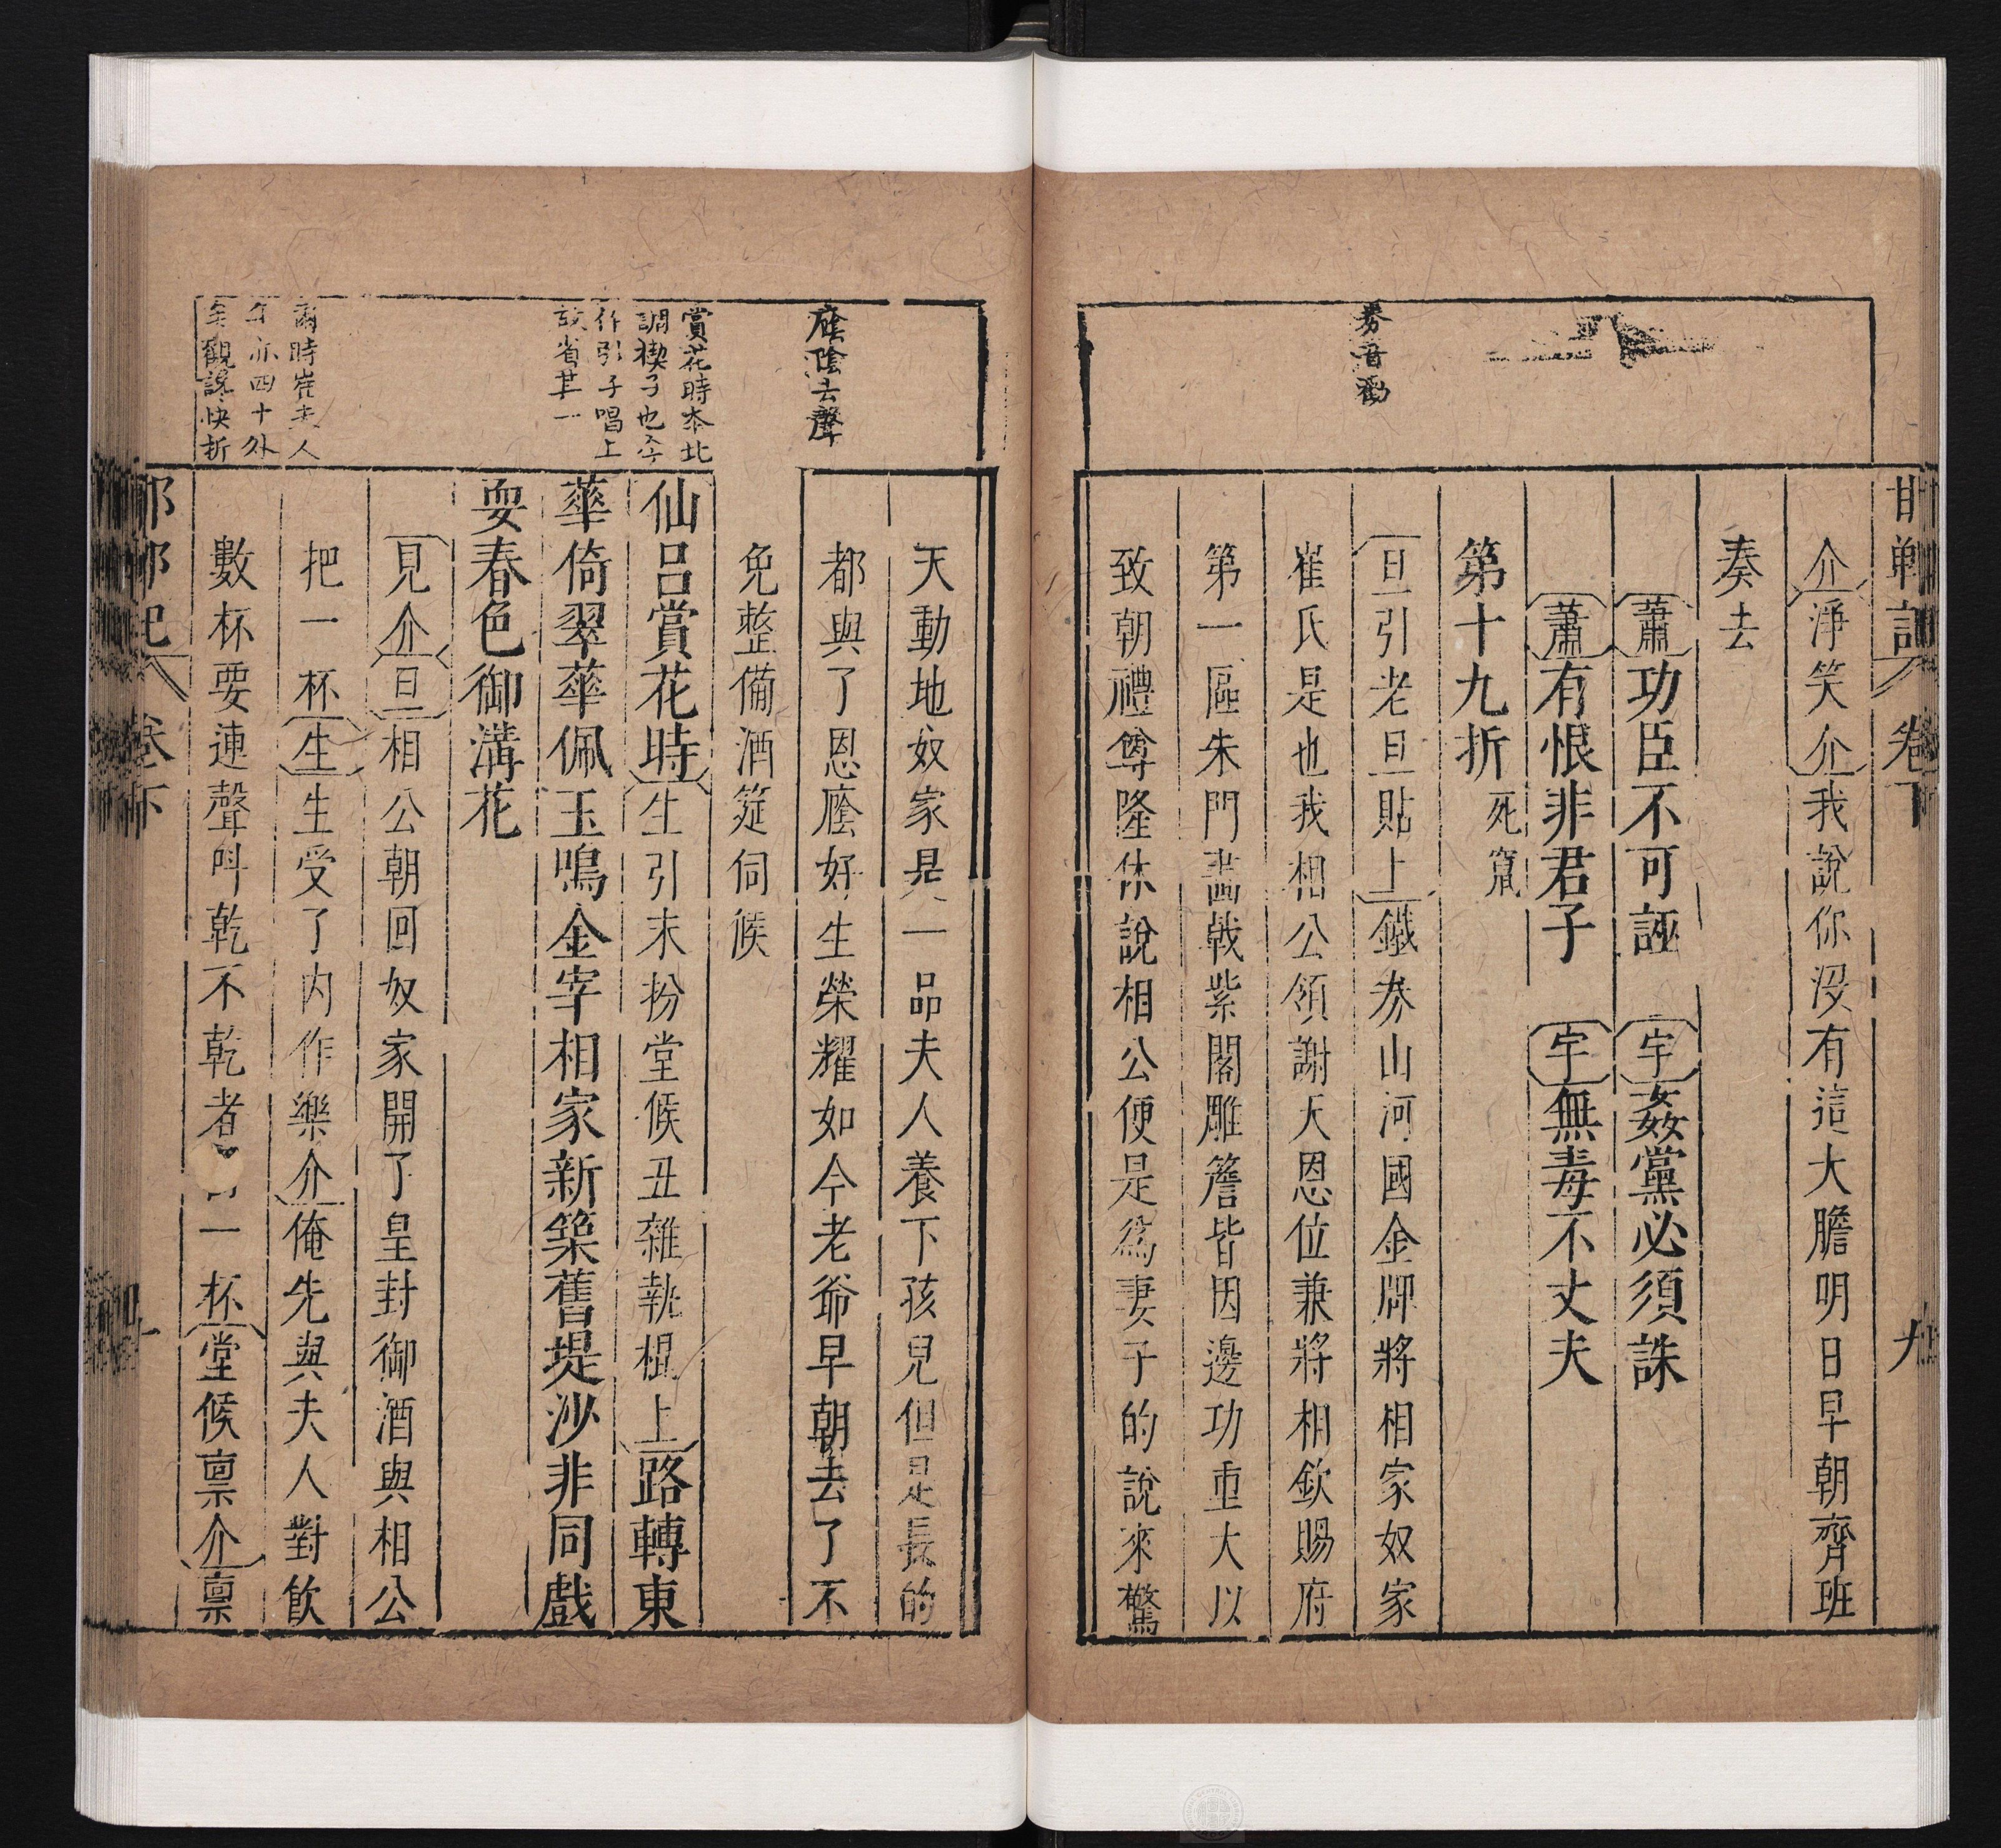 邯鄲記 卷下 九
介淨笑介我說你没有這大膽明日早朝齊班
奏去
蕭功臣不可誣 宇姦黨必須誅
蕭有恨非君子 宇無毒不丈夫
第十九折 死竄
旦引老旦貼上鐵券山河國金牌將相家奴家
崔氏是也我相公領謝天恩位兼將相欽賜府
第一區朱門畵戟紫閣雕簷皆因邊功重大以
致朝禮尊隆休說相公便是爲妻子的說來驚
券音勸
天動地奴家是一品夫人養下孩兒但是長的
都與了恩廕好生榮耀如今老爺早朝去了不
免整備酒筵伺候
仙吕賞花時生引末扮堂候丑雜執棍上路轉東
華倚翠華佩玉鳴金宰相家新築舊堤沙非同戲
耍春色御溝花
見介旦相公朝回奴家開了皇封御酒與相公
把一杯生生受了内作樂介俺先與夫人對飲
數杯要連聲呌乾不乾者一杯堂候禀介禀
廕陰去聲
賞花時本北
調楔子也今
作引子唱上
故省其一
爾時崔夫人
年亦四十外
矣觀説快折
邯鄲記 卷下